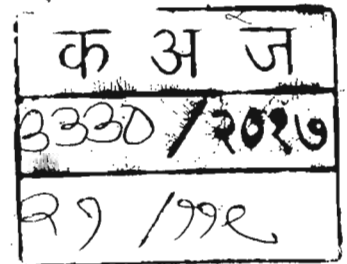 क अ ज
३३३०/२०१७
२१/११९